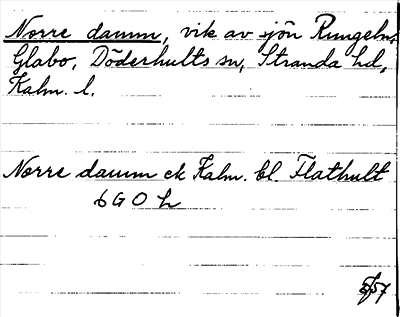 Norre damm, vik av sjön Rungeln,
Glabo, Döderhults sn, Stranda hd,
Kalm. l.
Norre damm ek Kalm. bl. Flathult
6 G O h
5/57